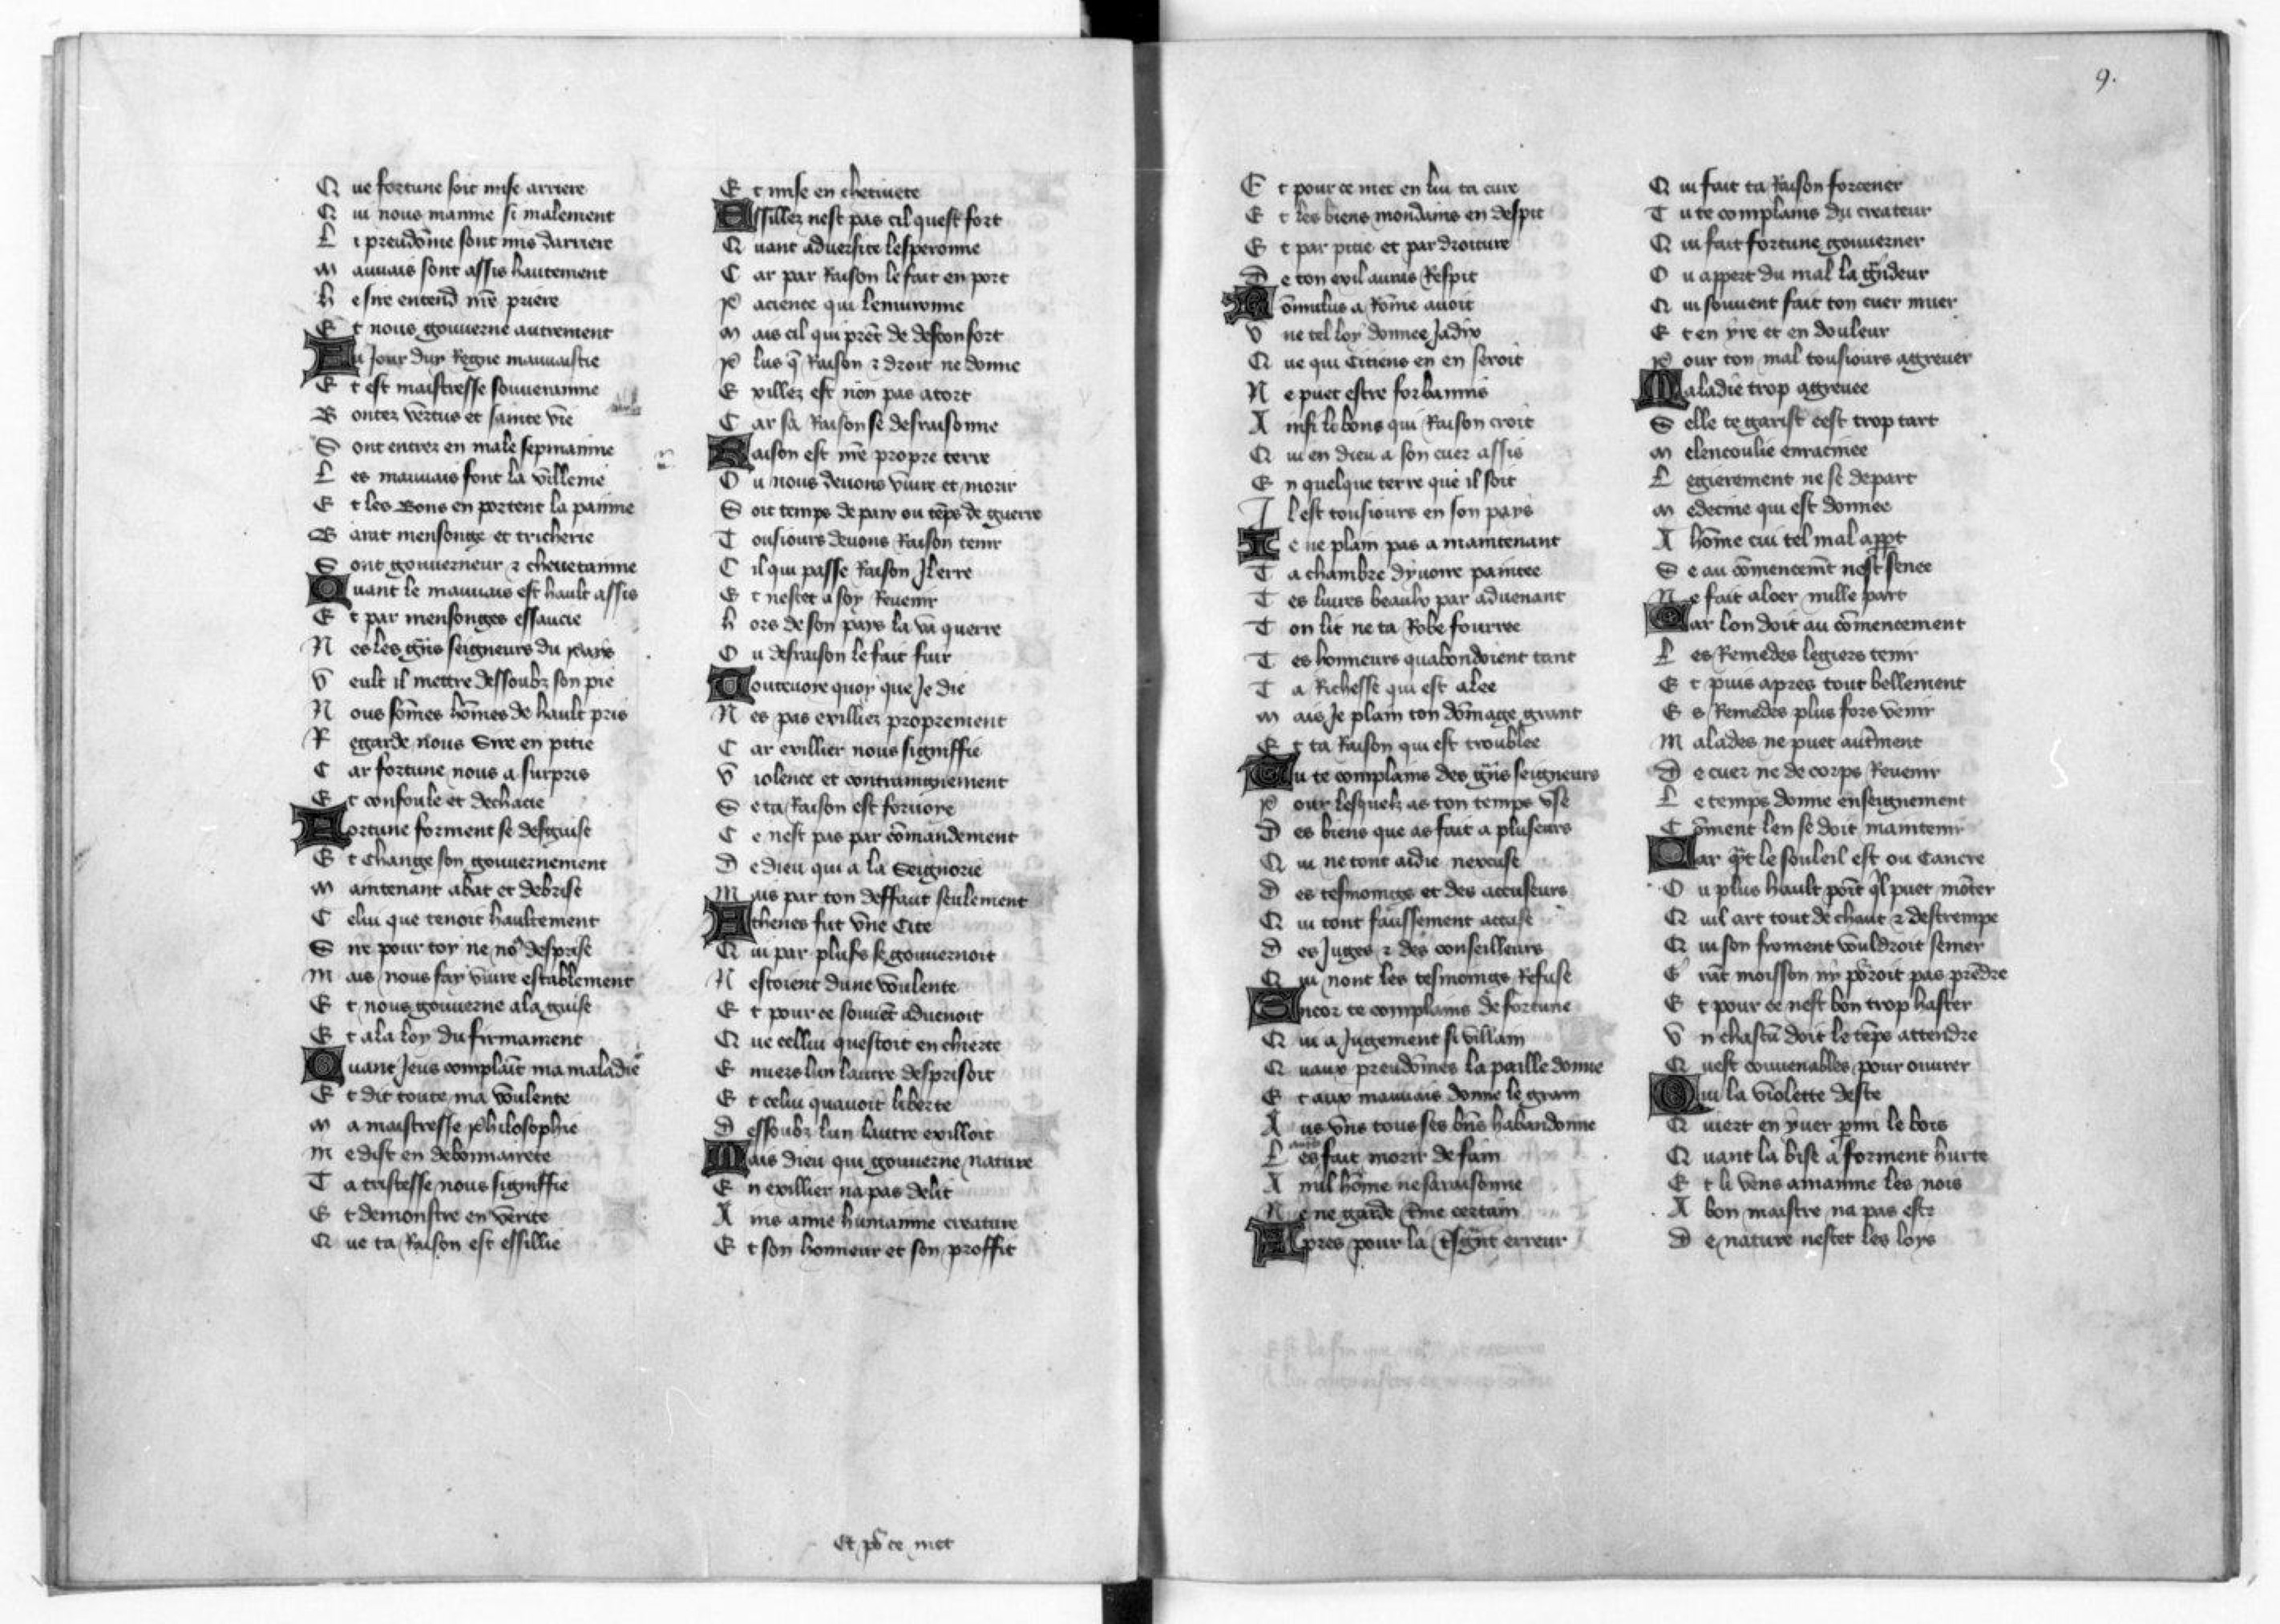 Que fortune soit mise arriere
Qui nous mainne si malement
Li preudōme sont mis darriere
Mauuais sont assis hautement
He sire entend mē priere
Et nous gouuerne autrement
Au Jour duy Regne mauuaistie
Et est maistresse souuerainne
Bontez vertus et sainte vie
Sont entrez en male sepmainne
Les mauuais font la villenie
Et les Bons en portent la painne
Barat mensonge et tricherie
Sont gouuerneur ⁊ cheuetainne
Quant le mauuais est hault assis
Et par mensonges essaucie
Nes les gñs seigneurs du pais
Veult il mettre dessoubz son pie
Nous sōmes hōmes de hault pris
Regarde nous Sire en pitie
Car fortune nous a surpris
Et confoule et dechacie
Fortune forment se desguise
Et change son gouuernement
Maintenant abat et debrise
Celui que tenoit haultement
Sire pour toy ne no⁹ desprise
Mais nous fay viure establement
Et nous gouuerne a la guise
Et a la loy du firmament
Quant Jeus complait ma maladie
Et dit toute ma voulente
Ma maistresse philosophie
Me dist en debonnairete
Ta tristesse nous signiffie
Et demonstre en verite
Que ta Raison est essillie
Et mise en chetiuete
Essillez nest pas cil quest fort
Quant aduersite lesperonne
Car par Raison le fait en port
Pacience qui lenuironne
Mais cil qui prēt de desconfort
Plus q̄ Raison ⁊ droit ne donne
Exillez est non pas a tort
Car sa Raison se desraisonne
Raison est mē propre terre
Ou nous deuons viure et morir
Soit temps de paix ou tēps de guerre
Tousiours deuons Raison tenir
Cil qui passe Raison Il erre
Et nestet a soy Reuenir
Hors de son pays la va querre
Ou desraison le fait fuir
Touteuore quoy que Je die
Nes pas exilliez proprement
Car exillier nous signiffie
Violence et contraingnement
Se ta Raison est foruore
Ce nest pas par cōmandement
De dieu qui a la Seignorie
Mais par ton deffaut seulement
Athenes fut vne Cite
Qui par plusrs se gouuernoit
Nestoient dune voulente
Et pour ce souuēt aduenoit
Que cellui questoit en chierte
Enuers lun lautre desprisoit
Et celui quauoit liberte
Dessoubz lun lautre exilloit
Mais dieu qui gouuerne nature
En exillier na pas delit
Ains aime humainne creature
Et son honneur et son proffit
Et po͛ ce met
9.
Et pour ce met en lui ta cure
Et les biens mondains en despit
Et par pitie et par droiture
De ton exil auras Respit
Rōmulus a Rōme auoit
Vne tel loy donnee Jadix
Que qui Citiens en en seroit
Ne puet estre forbannis
Ainsi li bons qui Raison croit
Qui en dieu a son cuer assis
En quelque terre que il soit
Il est tousiours en son pays
Je ne plain pas a maintenant
Ta chambre dyuoire paintee
Tes liures beaulx par aduenant
Ton lit ne ta Robe fourree
Tes honneurs quabondoient tant
Ta Richesse qui est alee
Mais Je plain ton dōmage grant
Et ta Raison qui est troublee
Tu te complains des gñs seigneurs
Pour lesquelz as ton temps vse
Des biens que as fait a pluseurs
Qui ne tont aidie nexcuse
Des tesmoings et des accuseurs
Qui tont faussement accuse
Des Juges ⁊ des conseilleurs
Qui nont les tesmoings Refuse
Encor te complains de fortune
Qui a Jugement si villain
Quaux preudōmes la paille donne
Et aux mauuais donne le grain
Aus vns tous ses bñs habandonne
Les autres fait morir de fain
A nul hōme ne saraisonne
Ne ne garde Rme certain
Apres pour la tsgñt erreur
Qui fait ta Raison forcener
Tu te complains du createur
Qui fait fortune gouuerner
Ou appert du mal la grādeur
Qui souuent fait ton cuer muer
Et en yre et en douleur
Pour ton mal tousiours aggreuer
Maladie trop aggreuee
Selle te garist cest trop tart
Melencoulie enracinee
Legierement ne se depart
Medecine qui est donnee
A hōme cui tel mal appt
Se au cōmencemt nest senee
Ne fait aloer nulle part
Car lon doit au cōmencement
Les Remedes legiers tenir
Et puis apres tout bellement
Es Remedes plus fors venir
Malades ne puet autment
De cuer ne de corps Reuenir
Le temps donne enseignement
Cōment len se doit maintenir
Car q̄t le souleil est ou Cancre
Ou plus hault poīt q̄l puet mōter
Quil art tout de chaut ⁊ destrempe
Qui son froment vouldroit semer
Grāt moisson ny porroit pas prēdre
Et pour ce nest bon trop haster
Vn chascū doit le tēps attendre
Quest conuenables pour ouurer
Qui la violette deste
Quiert en yuer pmi le bois
Quant la bise a forment hurte
Et li vens amainne les nois
A bon maistre na pas este
De nature nestet les loys